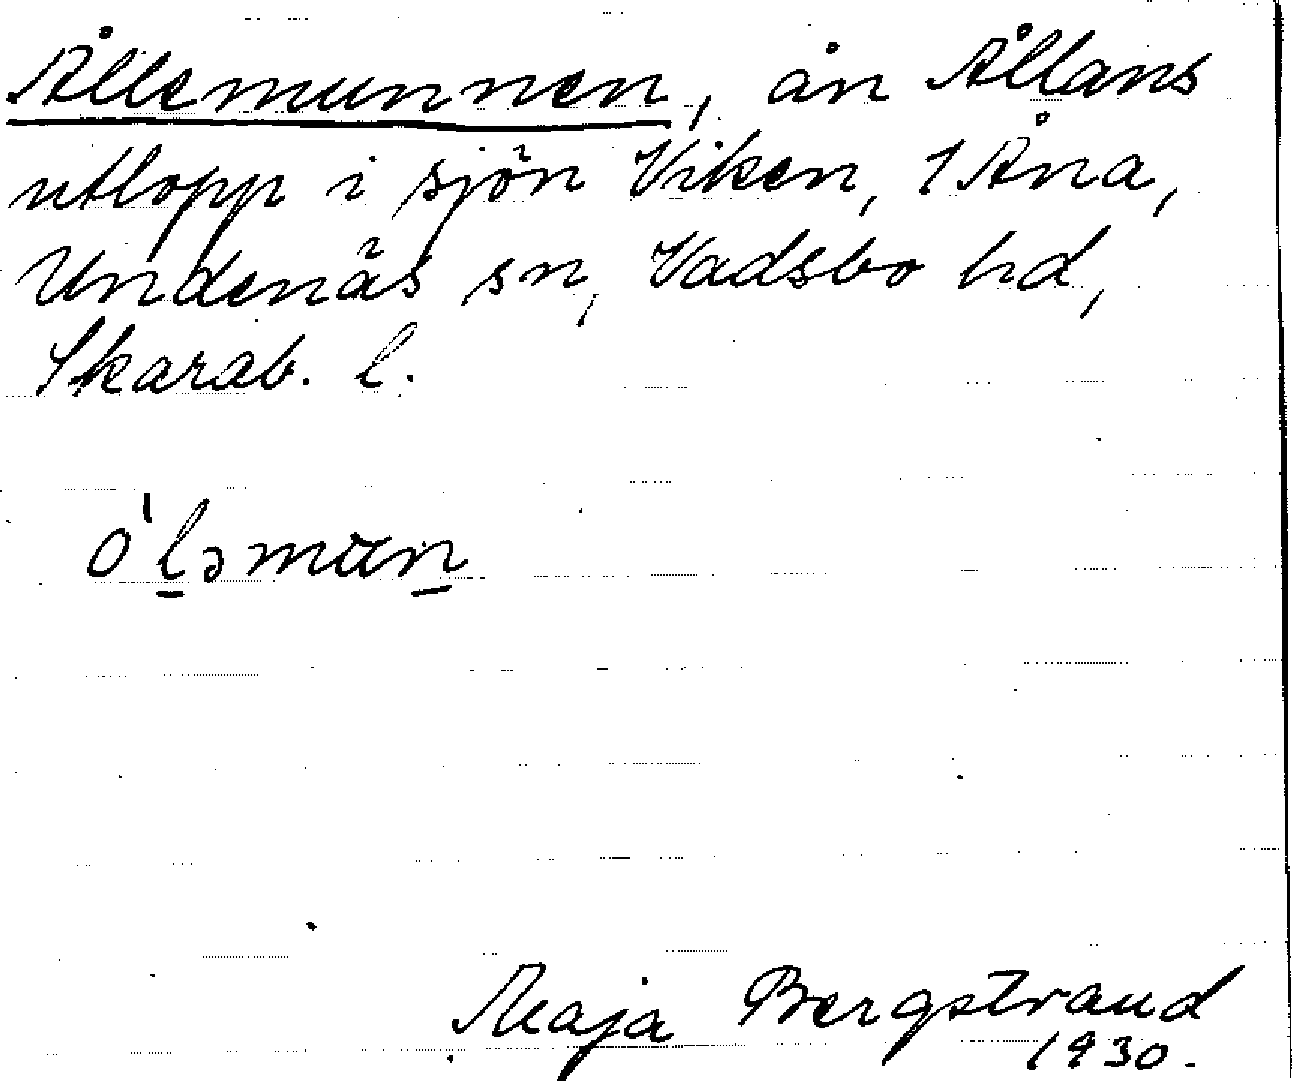 Ållemunnen, ån Ållans
utlopp i sjön Viken, 1 Åna,
Undenäs sn, Vadsbo hd,
Skarab. l.
o'l̲əmun̲
Maja Bergstrand
1930.